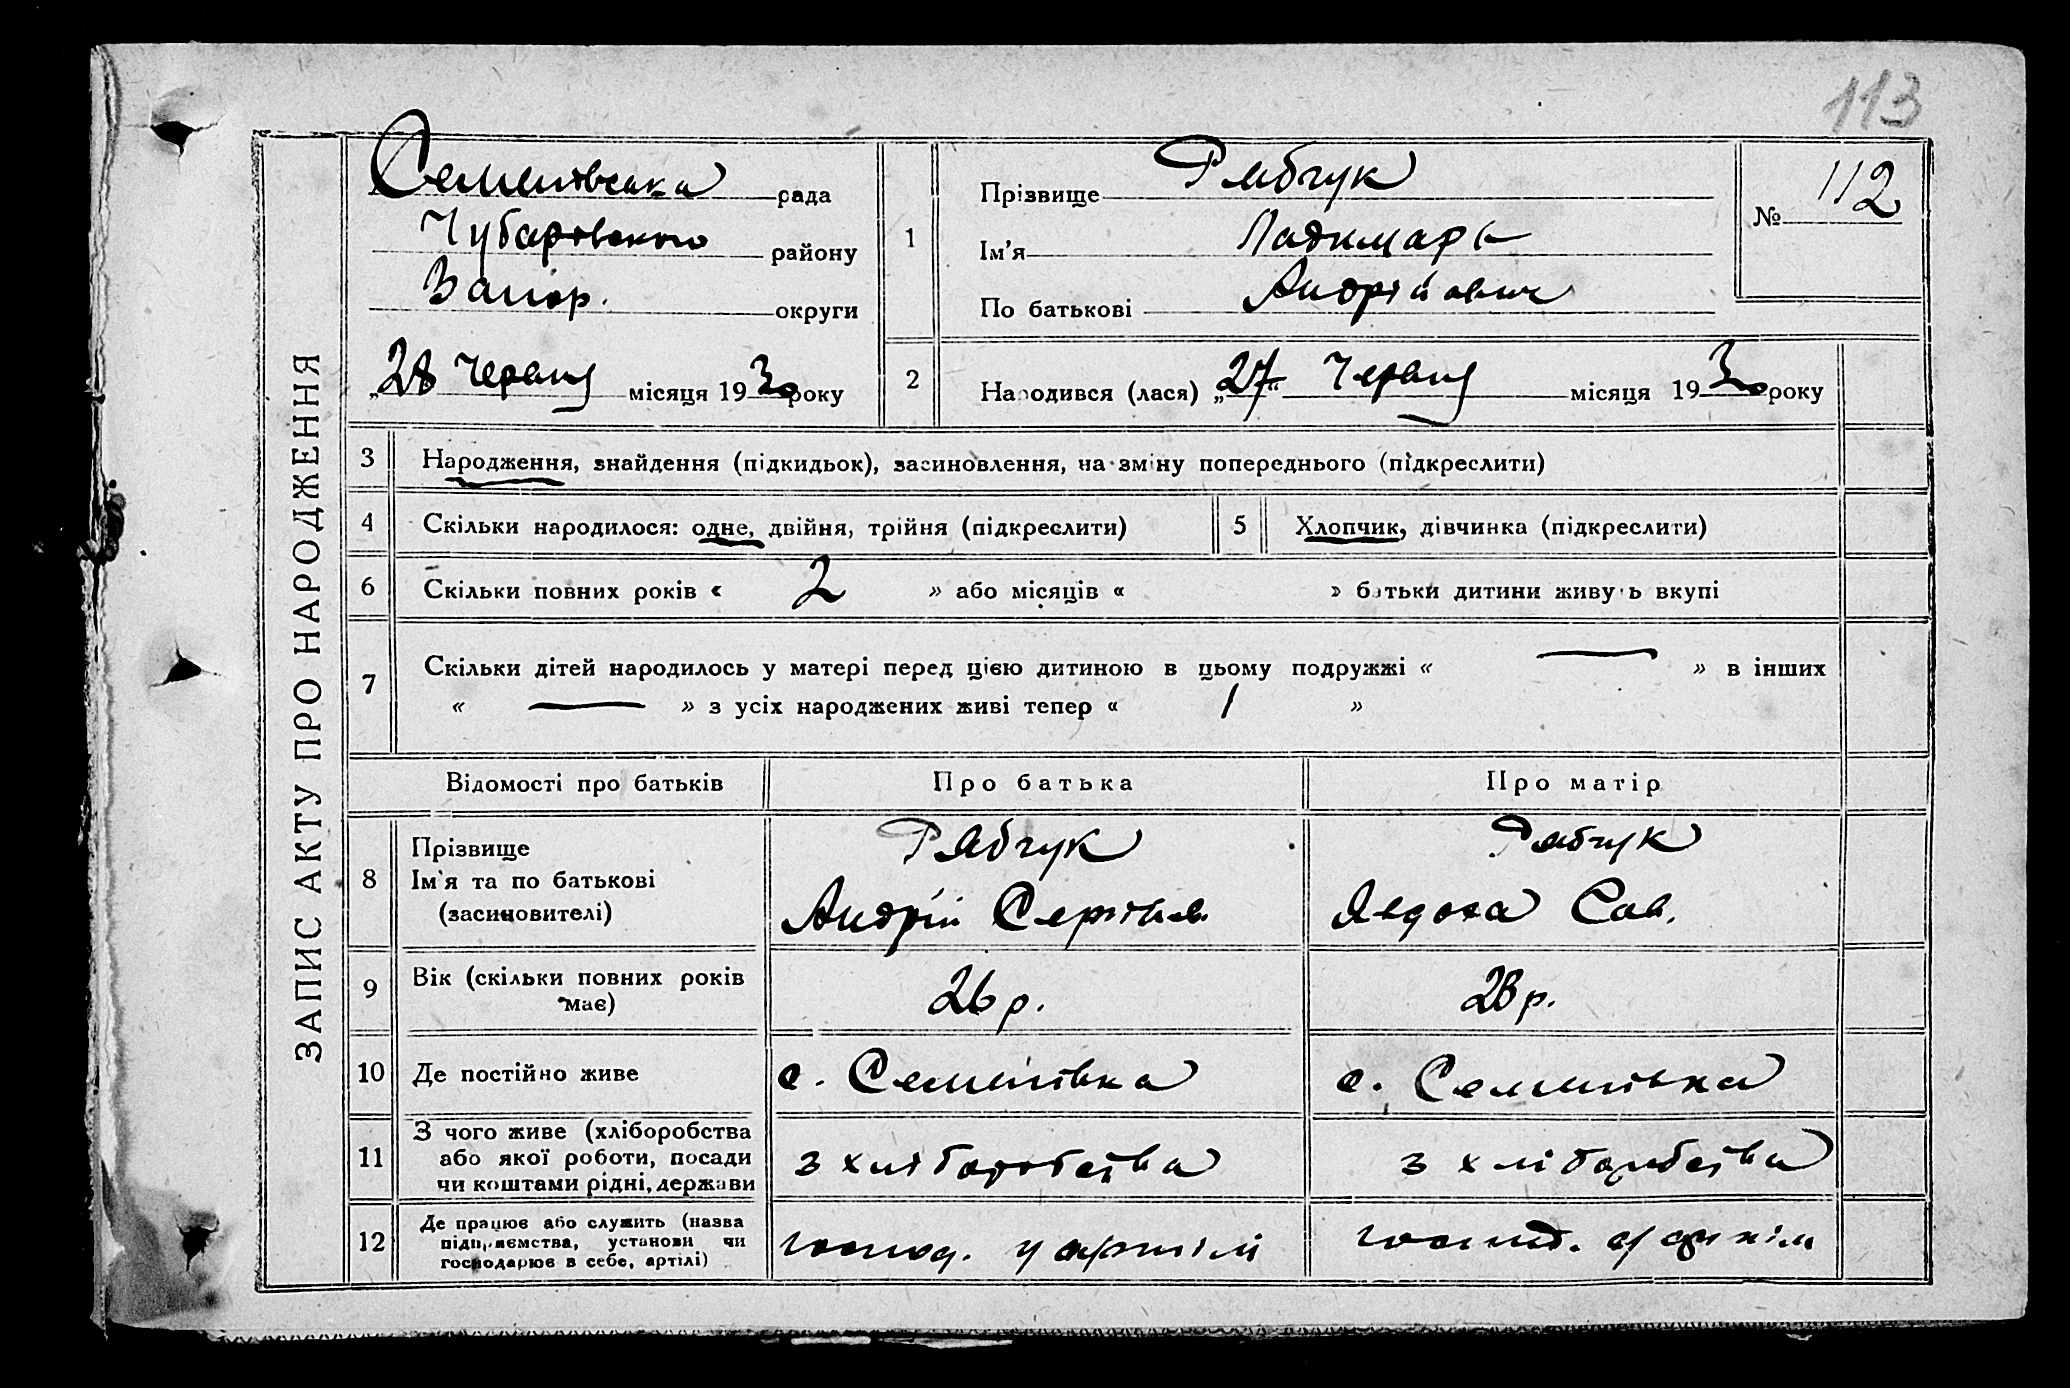 113
ЗАПИС АКТУ ПРО НАРОДЖЕННЯ
Семенівська рада
Чубарівського району
Запор. округи
„28 червня місяця 1930 року
1
Прізвище Рябчук
Ім'я Ладимарь
По батькові Андрійович
№ 112
2 Народився (лася) „27“ Червня місяця 1930 року
3 Народження, знайдення (підкидьок), засиновлення, на зміну попереднього (підкреслити)
4 Скільки народилося: одне, двійня, трійня (підкреслити)
5 Хлопчик, дівчинка (підкреслити)
6 Скільки повних років « 2 » або місяців « » батьки дитини живуть вкупі
7 Скільки дітей народилось у матері перед цією дитиною в цьому подружжі « — » в інших
« — » з усіх народжених живі тепер « 1 »
Відомості про батьків Про батька Про матір
8 Прізвище
Ім'я та по батькові
(засиновителі)
Рябчук
Андрій Сергіев.
Рябчук
Явдоха Сав.
9 Вік (скільки повних років
має)
26 р.
28 р.
10 Де постійно живе
с. Семенівка
с. Семенівка
11 З чого живе (хліборобства
або якої роботи, посади
чи коштами рідні, держави
з хліборобства
з хліборобства
12 Де працює або служить (назва
підприємства, установи чи
господарює в себе, артілі)
господ. у артілі
господ. у артілі